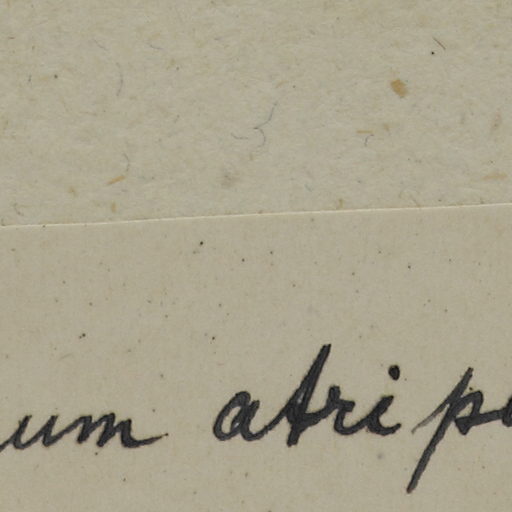 um atrip